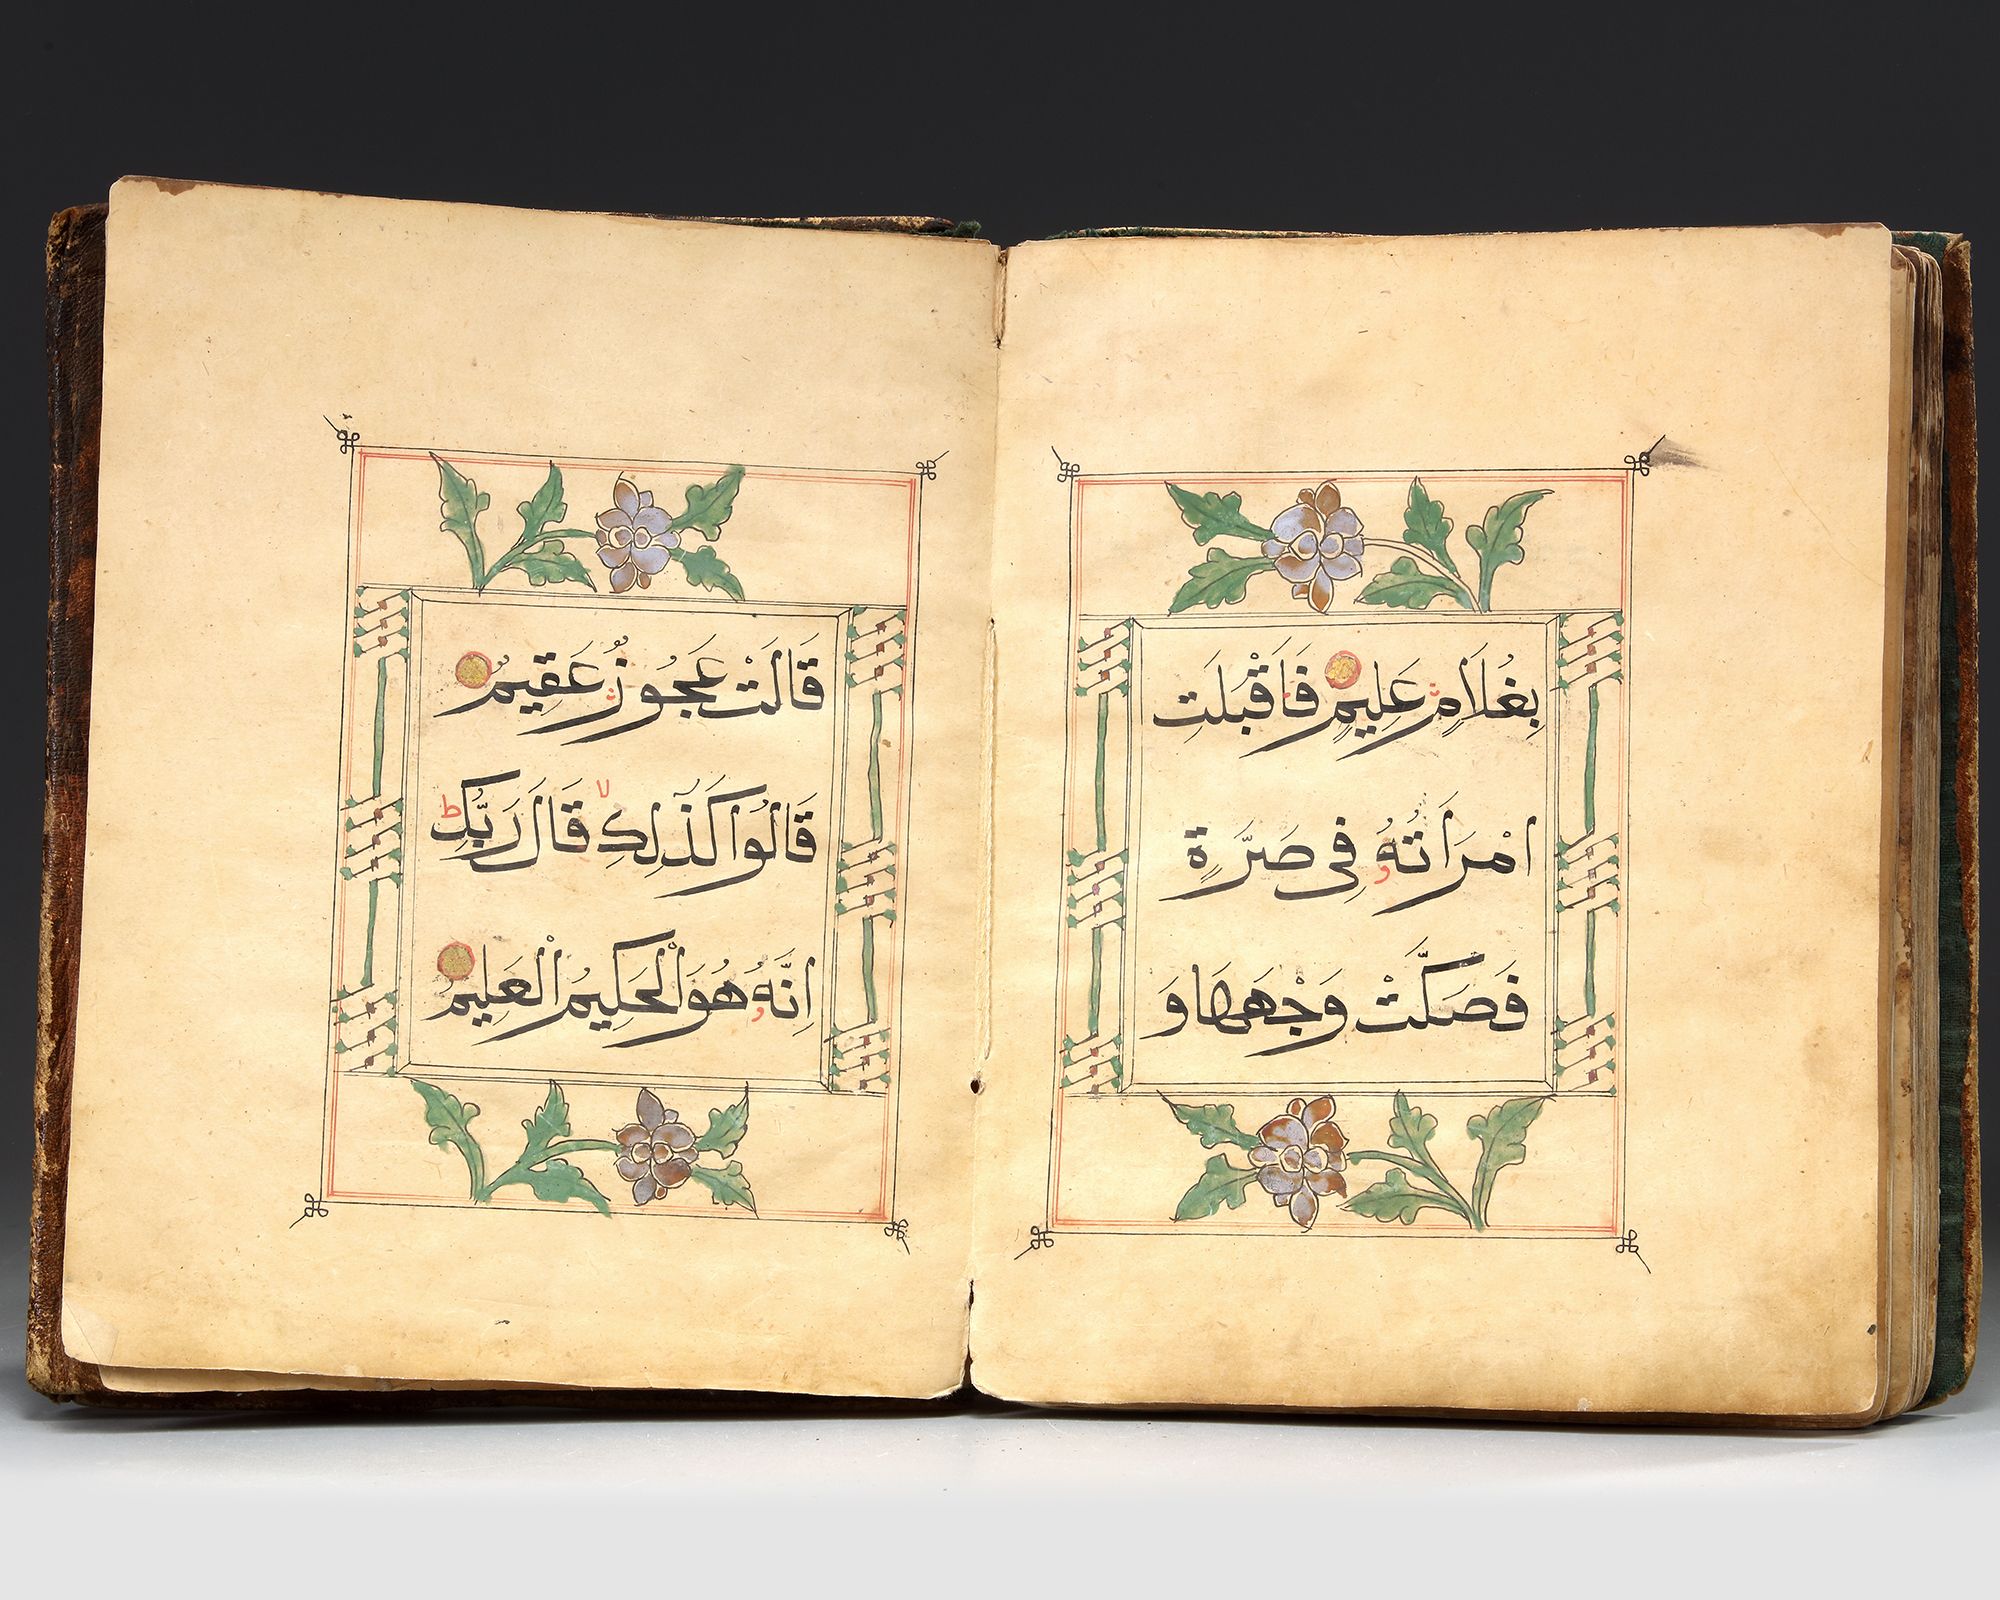 بِغُلَامٍ عَلِيمٍ فَاَقْبَلَتِ
امْرَاَتُهُ فِى صَرَّةٍ
فَصَكَّتْ وَجْهَهَا وَ
قَالَتْ عَجُوزٌ عَقِيمٌ
قَالُوا كَذَلِكِ لا قَالَ رَبُّكِ ط
اِنَّهُ هُوَ الْحَكِيمُ الْعَلِيمُ